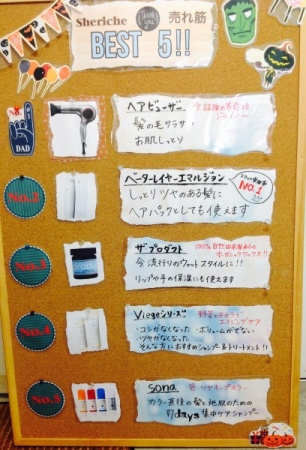 Sheriche
売れ筋
BEST 5!!
DAD
ヘアビューザー
今話題の
ドライヤー
髪の毛サラサラ
お肌しっとり
No.2
ベーターレイヤーエマルジョン
No.1
しっとりツヤのある髪に
ヘアパックとしても使えます
No.3
ザプロダクト
100%自然由来原料の
オーガニックワックス!!
今流行りのウェットスタイルに!!
リップや手の保湿にも使えます
No.4
Viegeシリーズ
野菜のチカラで
エイジングケア
・コシがなくなった ・ボリュームがでない
・ツヤがなくなった
そんな方におすすめシャンプー&トリートメント!!
No.5
sona
カラー直後の髪と地肌のための
7days 集中ケアシャンプー